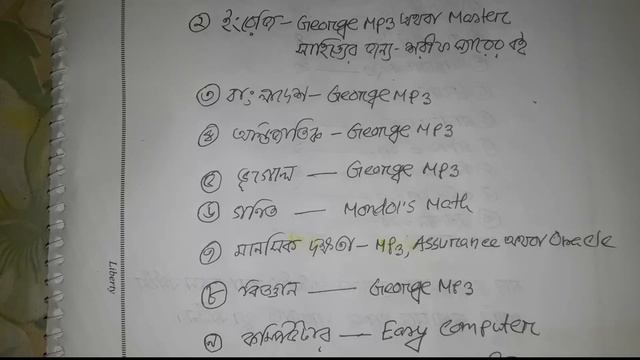 ② ইংরেজি - George MP3 অথবা Master
সাহিত্যের জন্য - শরীফ স্যারের বই
③ বাংলাদেশ - George MP3
④ আন্তর্জাতিক - George MP3
⑤ ভূগোল — George MP3
⑥ গনিত — Mondol's Math
⑦ মানসিক দক্ষতা - MP3, Assurance অথবা Oracle
⑧ বিজ্ঞান — George MP3
⑨ কম্পিউটার — Easy Computer
Liberty